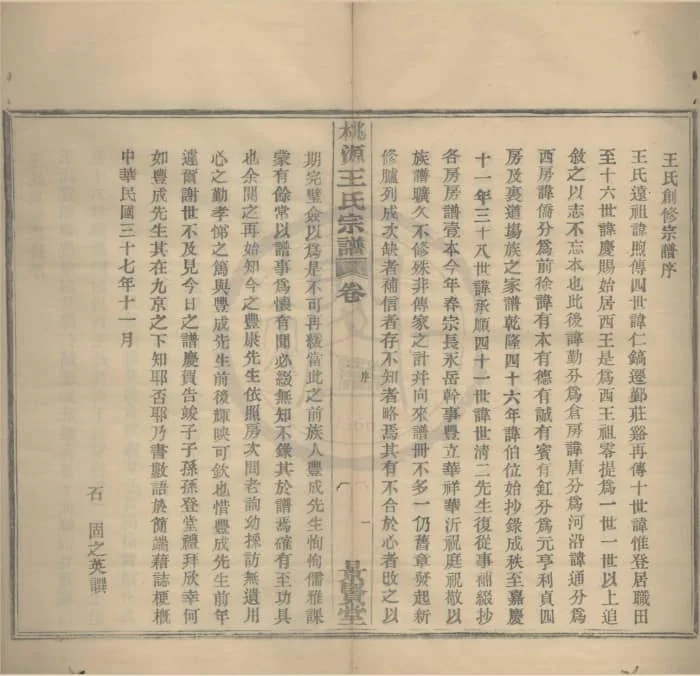 王氏創修宗譜序
王氏遠祖諱煦傳四世諱仁鎬遷鄞莊谿再傳十世諱惟登居職田
至十六世諱慶賜始居西王是爲西王祖零提爲一世一世以上追
敘之以志不忘本也此後諱勤分爲倉房諱唐分爲河沿諱通分爲
西房諱僑分爲前徐諱有本有德有誠有賓有釭分爲元亨利貞四
房及裏道塲族之家譜乾隆四十六年諱伯位始抄錄成秩至嘉慶
十一年三十八世諱承順四十一世諱世淸二先生復從事補綴抄
各房房譜壹本今年春宗長永岳幹事豐立華祥華沂祝庭祝散以
族譜曠久不修殊非傳家之計幷向來譜冊不多一仍舊章發起新
修臚列成次缺者補信者存不知者略焉其有不合於心者改之以
桃源王氏宗譜
卷
序
一
景賢堂
期完璧僉以爲是不可再緩當此之前族人豐成先生恂恂儒雅課
蒙有餘常以譜事爲懷有聞必綴無知不錄其於譜焉確有至功具
也余閱之再始知今之豐康先生依照房次問老詢幼採訪無遺用
心之勤孝悌之篤與豐成先生前後輝映可欽也惜豐成先生前年
遽爾謝世不及見今日之譜慶賀告竣子子孫孫登堂禮拜欣幸何
如豐成先生其在九京之下知耶否耶乃書數語於簡端藉誌梗槪
中華民國三十七年十一月
石固之英譔